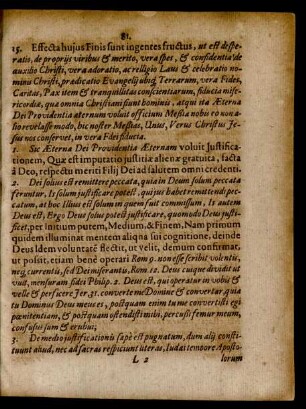 81.
15. Effecta hujus Finis sunt ingentes fructus, ut est despe-
ratio, de proprijs viribus & merito, vera spes, & confidentia de
auxilio Christi, vera adoratio, ac religio Laus & celebratio no-
minis Christi, prædicatio Evangelij ubiq; Terrarum, vera Fides,
Caritas, Pax item & tranquillitas conscientiarum, fiducia mise-
ricordiæ, qua omnia Christiani sunt hominis, atqui ita Æterna
Dei Providentia æternum voluit officium Messiæ nobis eo non
aliore velasse modo, hic noster Messias, Unius, Verus Christus Je-
sus nos conservet, in vera Fidei fiducia.
1. Sic Æterna Dei Providentia Æternam voluit Justifica-
tionem, Quæ est imputatio justitiæ alienæ gratuita, facta
à Deo, respectu meriti Filij Dei ad salutem omni credenti.
2. Dei solius est remittere peccata, quia in Deum solum peccata
feruntur, Is solum justificare potest, qui jus habet remittendi pec-
catum, at hoc Illius est solum in quem fuit commissum, Is autem
Deus est, Ergo Deus solus potest justificare, quomodo Deus justi-
ficet, per Initium putem, Medium, & Finem, Nam primum
quidem illuminat mentem aliqua sui cognitione, deinde
Deus Idem voluntatē flectit, ut velit, demum confirmat,
ut possit, etiam bene operari Rom 9. non esse scribit volentis,
neq; currentis, sed Dei miserantis, Rom 12. Deus cuique dividit ut
vult, mensuram fidei Philip. 2. Deus est, qui operatur in vobis &
velle & perficere Jer, 31. converte me Domine & convertar quia
tu Dominus Deus meus es, postquam enim tu me convertisti egi
pœnitentiam, & postquam ostendisti mihi, percussi femur meum,
confusus sum & erubui;
3. De modo justificationis sæpè est pugnatum, dum alij consti-
tuunt aliud, nec ad sacras respiciunt literas, Judæi tempore Aposto-
L 2 lorum